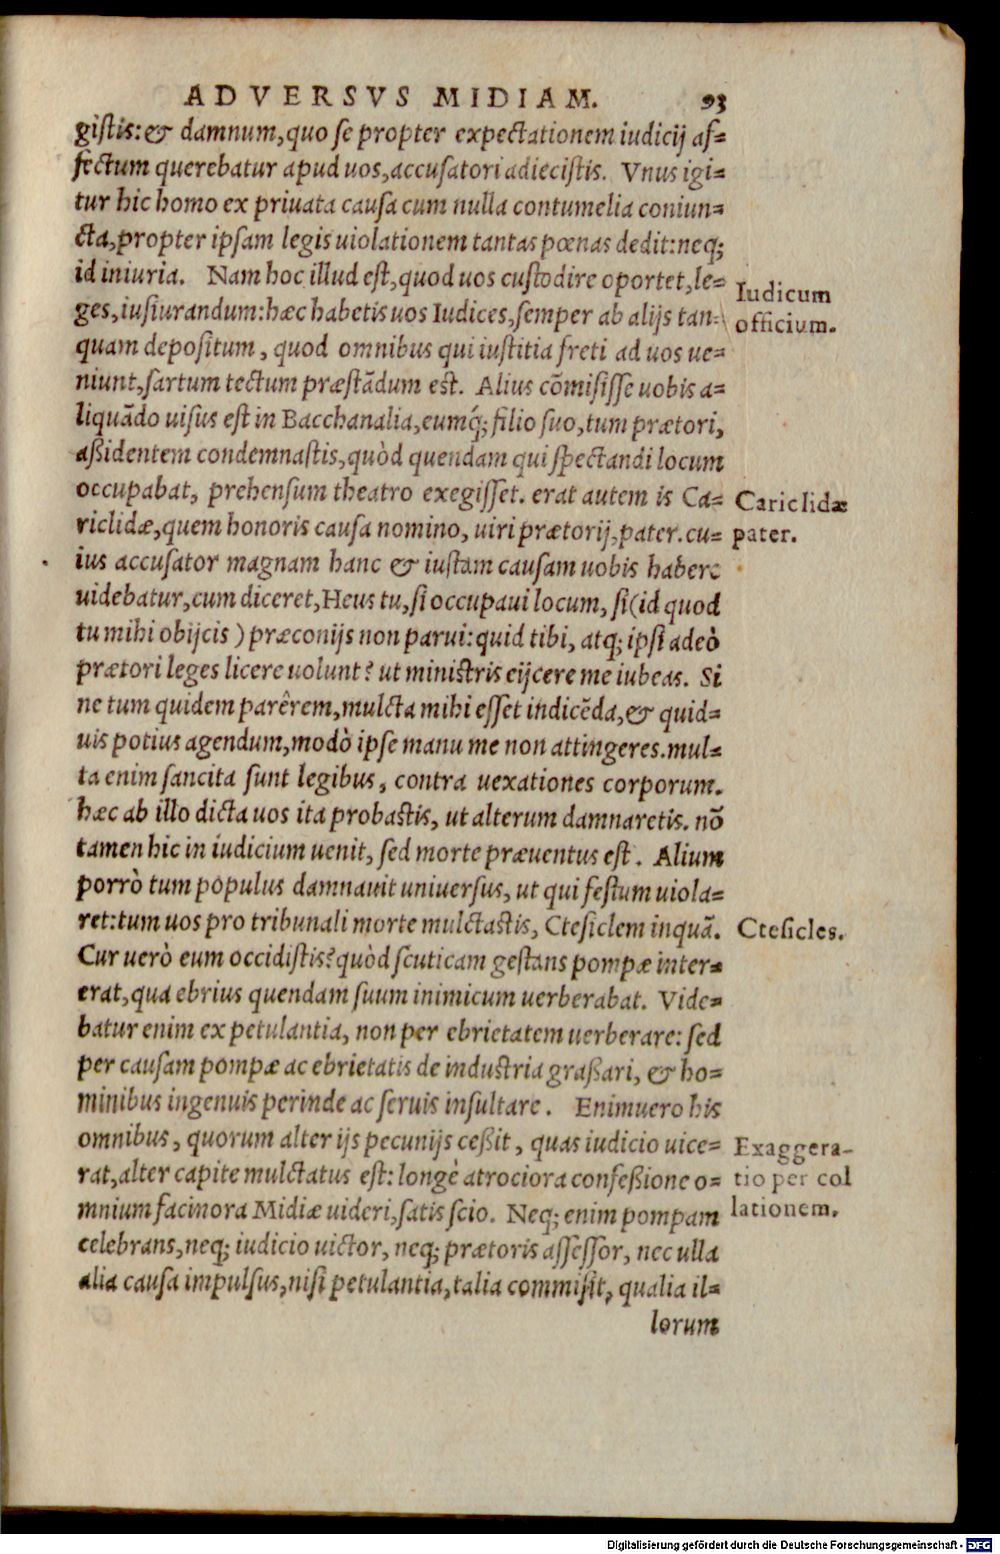 ADVERSVS MIDIAM. 93
gistis: & damnum, quo se propter expectationem iudicij af-
fectum querebatur apud uos, accusatori adiecistis. Vnus igi-
tur hic homo ex priuata causa cum nulla contumelia coniun-
cta, propter ipsam legis uiolationem tantas pœnas dedit: neq;
id iniuria. Nam hoc illud est, quod uos custodire oportet, le-
ges, iusiurandum: hæc habetis uos Iudices, semper ab alijs tan-
Iudicum
officium.
quam depositum, quod omnibus qui iustitia freti ad uos ue-
niunt, sartum tectum præstãdum est. Alius cõmisisse uobis a-
liquãdo uisus est in Bacchanalia, eumq́; filio suo, tum prætori,
aßidentem condemnastis, quòd quendam qui spectandi locum
occupabat, prehensum theatro exegisset. erat autem is Ca-
Cariclidæ
pater.
riclidæ, quem honoris causa nomino, uiri prætorij, pater. cu-
ius accusator magnam hanc & iustam causam uobis habere
uidebatur, cum diceret, Heus tu, si occupaui locum, si (id quod
tu mihi obijcis) præconijs non parui: quid tibi, atq; ipsi adeò
prætori leges licere uolunt? ut ministris eijcere me iubeas. Si
ne tum quidem parêrem, mulcta mihi esset indicẽda, & quid-
uis potius agendum, modò ipse manu me non attingeres. mul-
ta enim sancita sunt legibus, contra uexationes corporum.
hæc ab illo dicta uos ita probastis, ut alterum damnaretis. nõ
tamen hic in iudicium uenit, sed morte præuentus est. Alium
porrò tum populus damnauit uniuersus, ut qui festum uiola-
ret: tum uos pro tribunali morte mulctastis, Ctesiclem inquã.
Ctesicles.
Cur uerò eum occidistis? quòd scuticam gestans pompæ inter-
erat, qua ebrius quendam suum inimicum uerberabat. Vide-
batur enim ex petulantia, non per ebrietatem uerberare: sed
per causam pompæ ac ebrietatis de industria graßari, & ho-
minibus ingenuis perinde ac seruis insultare. Enimuero his
omnibus, quorum alter ijs pecunijs ceßit, quas iudicio uice-
rat, alter capite mulctatus est: longè atrociora confeßione o-
mnium facinora Midiæ uideri, satis scio. Neq; enim pompam
Exaggera-
tio per col
lationem.
celebrans, neq; iudicio uictor, neq; prætoris assessor, nec ulla
alia causa impulsus, nisi petulantia, talia commisit, qualia il-
lorum
Digitalisierung gefördert durch die Deutsche Forschungsgemeinschaft - DFG